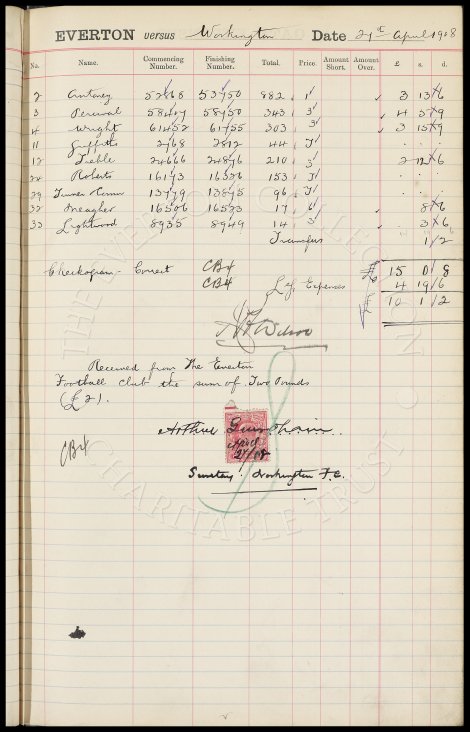 EVERTON versus Workington Date 21st April 1908
No. Name. Commencing Number. Finishing Number. Total. Price. Amount Short. Amount Over. £ s. d.
2 52868 53750 882 1 3 13 6
3 Percival 58407 58750 343 3 4 5 9
4 Wright 61452 61755 303 3 3 15 9
11 Griffiths 2768 2812 44 J
12 Treble 24666 24876 210 3 2 12 6
24 Roberts 16173 16326 153 J
29 Turner 13779 13875 96 J
32 Meagher 16506 16523 17 6 8 6
33 Lightwood 8935 8949 14 3 3 6
Transfers 1/2
Checkogram - Correct CB4 £ 15 0 8
CB4 Less Expenses 4 19 6
£ 10 1 2
Received from The Everton
Football club the sum of Two Pounds
(£2).
CB4
Arthur
April
21/08
Secretary Workington F.C.
THE EVERTON COLLECTION
CHARITABLE TRUST